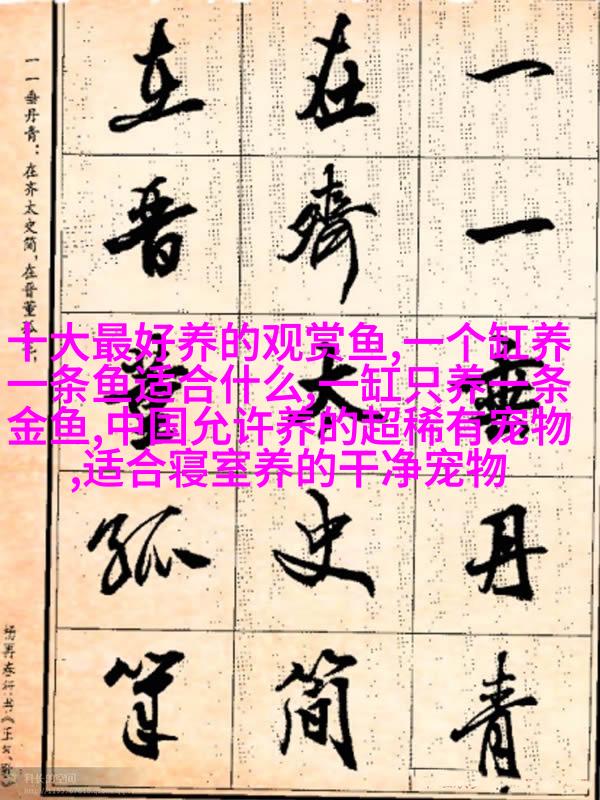 一一垂丹青
在齊太史简
在晋董狐筆
一一垂丹青：在齐太史简，在晋董狐
杨再春行书《正气
十大最好养的观赏鱼,一个缸养
一条鱼适合什么,一缸只养一条
金鱼,中国允许养的超稀有宠物
,适合寝室养的干净宠物
科长的空间